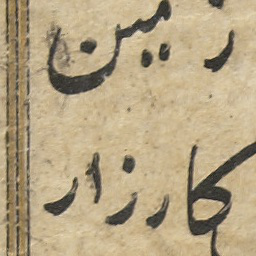 زمین
کارزار